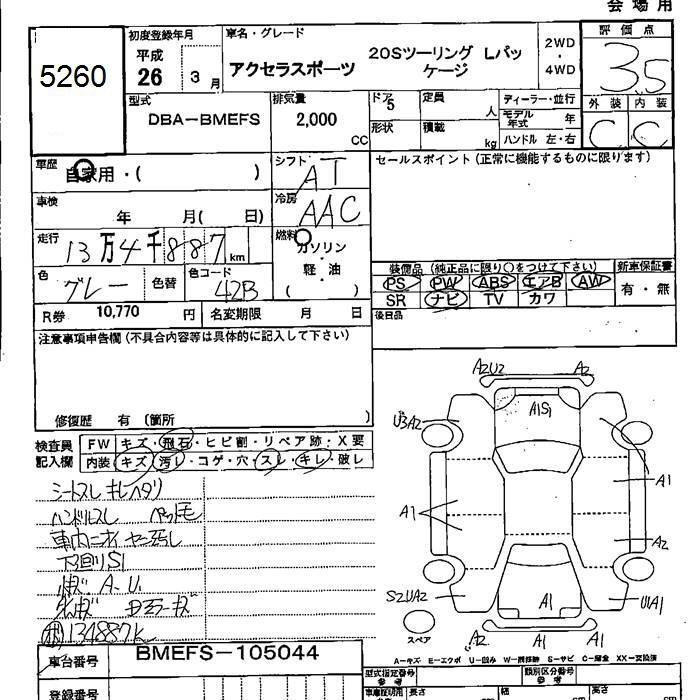 会場用
5260
初度登録年月
平成
26 3 月
車名・グレード
アクセラスポーツ
20Sツーリング Lパッ
ケージ
2WD
・
4WD
評価点
3.5
外装 内装
C C
型式
DBA-BMEFS
排気量
2,000
CC
ドア
5
定員
人
形状
積載
kg
ディーラー・並行
モデル
年式 年
ハンドル 左・右
車歴
自家用・( )
シフト
AT
セールスポイント(正常に機能するものに限ります)
車検
年 月( 日)
冷房
AAC
走行
13万4千887km
燃料
ガソリン
軽・油
( )
色
グレー
色替
色コード
42B
装備品 (純正品に限り○をつけて下さい)
PS PW ABS エアB AW
SR ナビ TV カワ
新車保証書
有・無
後日品
R券 10,770 円
名変期限 月 日
注意事項申告欄(不具合内容等は具体的に記入して下さい)
修復歴 有 (箇所 )
検査員
記入欄
FW キズ・飛石・ヒビ割・リペア跡・X要
内装 キズ・汚れ・コゲ・穴・スレ・キレ・破レ
シートスレ キレ ヘタリ
ハンドルスレ ペット毛
車内ニオイ ヤニ汚レ
下廻りS1
A.U.
134887k
車台番号
BMEFS-105044
登録番号
A2U2
A2
A1S1
U3A2
A1
A1
A2
S2UA2
A1
U1A1
スペア
A2
A1
A1
A-キズ E-エクボ U-凹み W-補修跡 S-サビ C-腐食 XX-交換済
型式指定番号
参考
類別区分番号
参考
車庫証明用
長さ
cm
幅
cm
高さ
cm